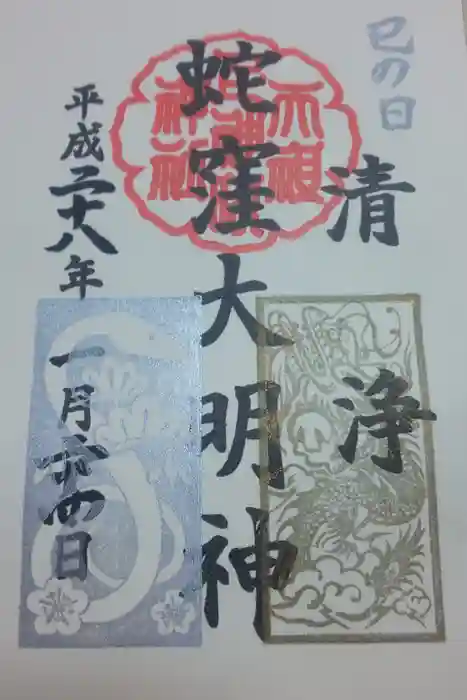 巳の日
清浄
蛇窪大明神
平成二十八年一月二十四日
天祖
神社